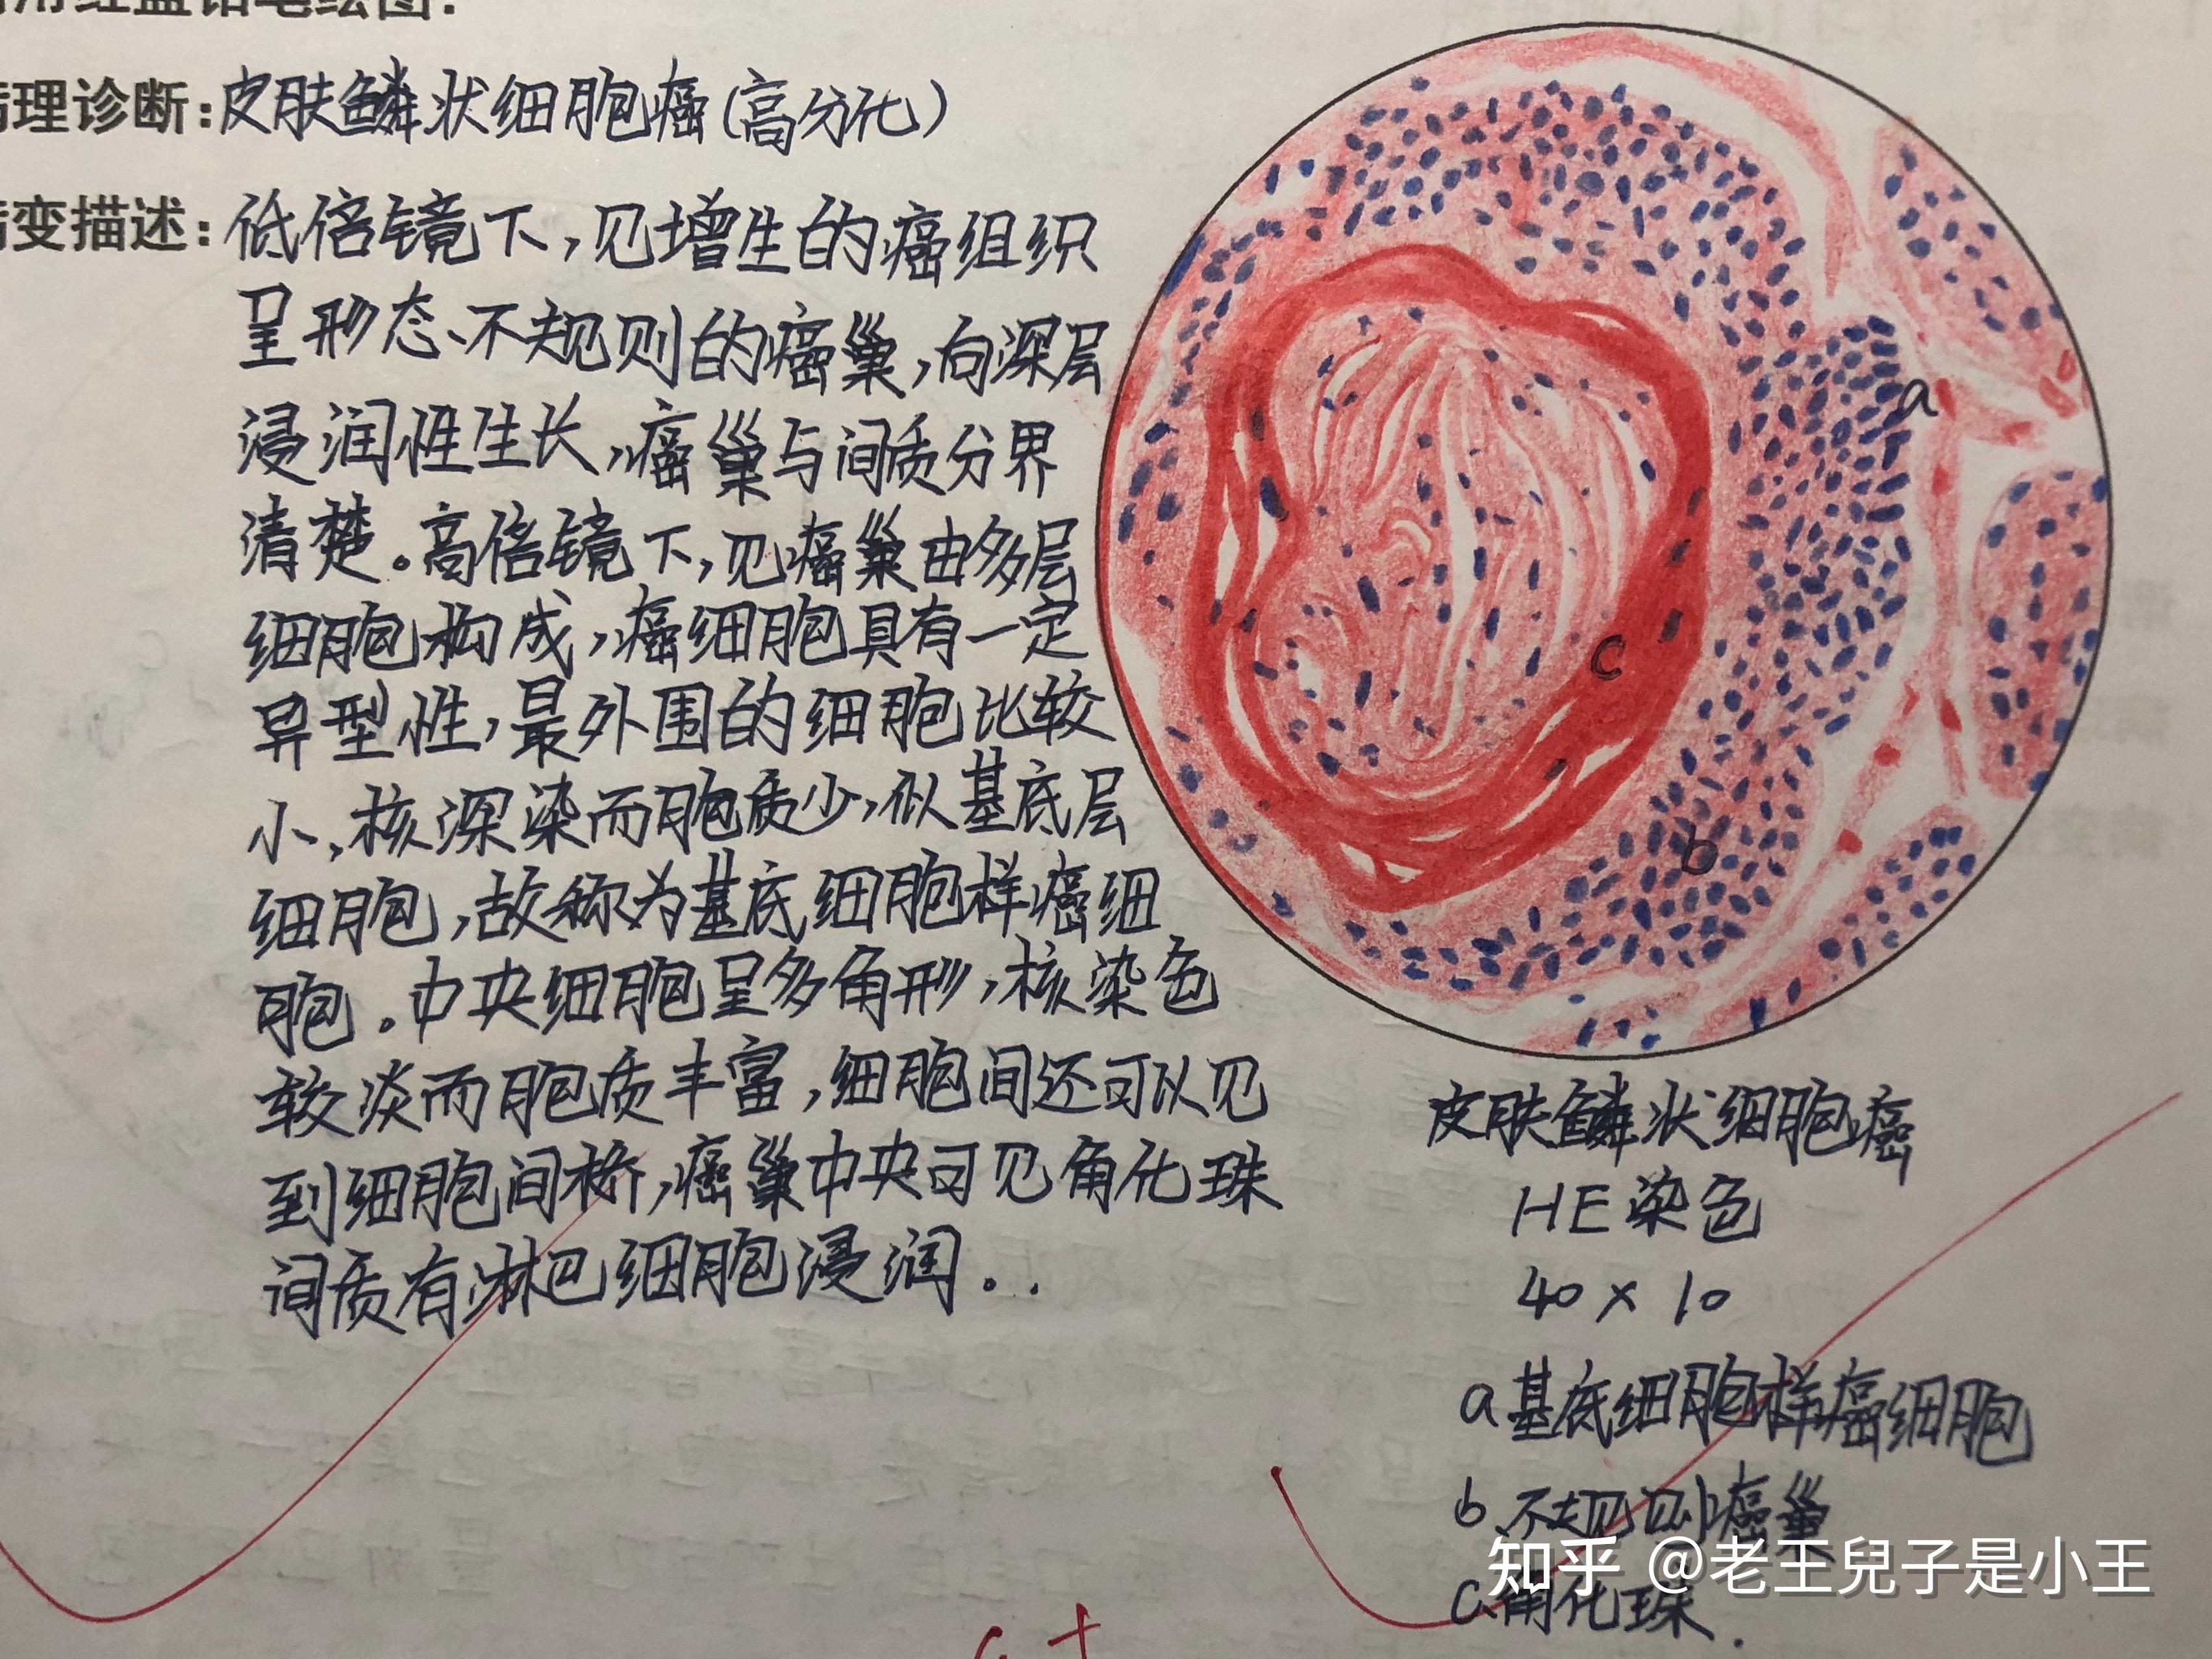 用红蓝铅笔绘图:
病理诊断:皮肤鳞状细胞癌(高分化)
病变描述:低倍镜下,见增生的癌组织
呈形态、不规则的癌巢,向深层
浸润性生长,癌巢与间质分界
清楚。高倍镜下,见癌巢由多层
细胞构成,癌细胞具有一定
异型性,最外围的细胞比较
小,核深染而胞质少,似基底层
细胞,故称为基底细胞样癌细
胞。中央细胞呈多角形,核染色
较淡而胞质丰富,细胞间还可以见
到细胞间桥,癌巢中央可见角化珠
间质有淋巴细胞浸润。..
a
c
b
皮肤鳞状细胞癌
HE染色
40×10
a基底细胞样癌细胞
b、不规则癌巢
c、角化珠.
知乎 @老王兒子是小王